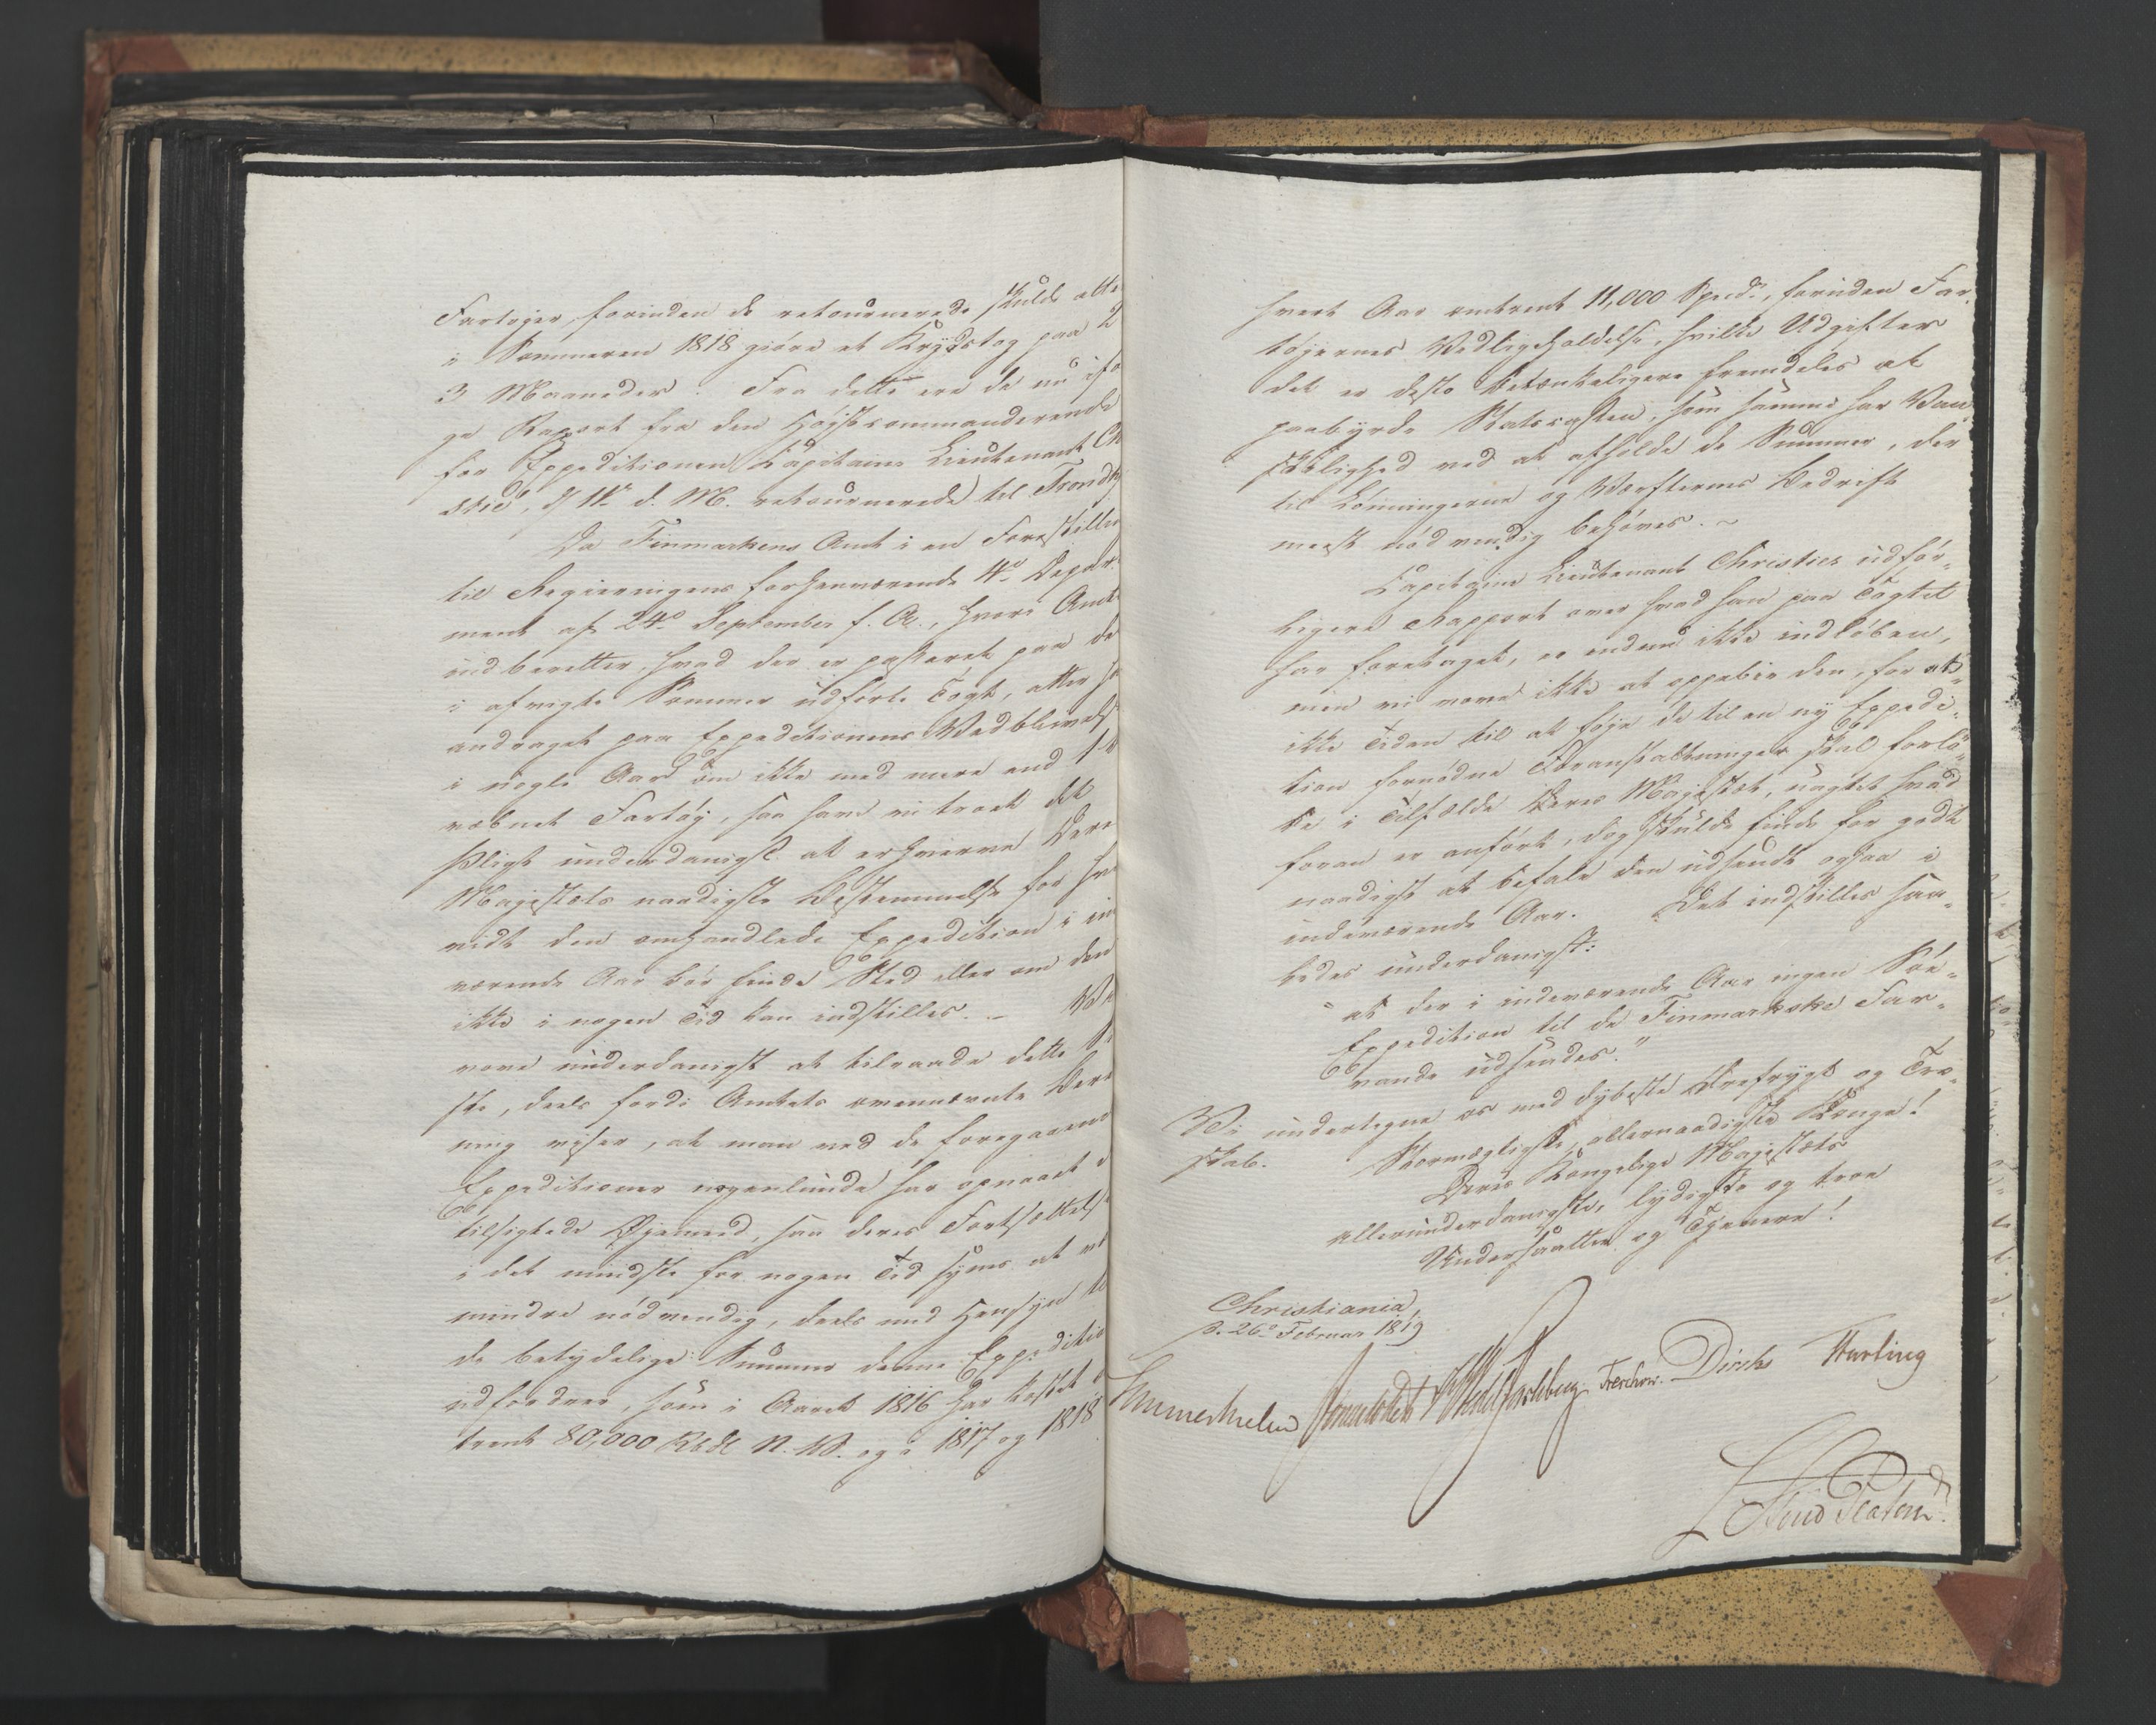 Fartøjer, forinden de retournerede skulde atte
i Sommeren 1818 giöre et Krydstog paa 2
3 Maaneder. Fra dette ere de nu ifö
ge Raport fra den Høystcommanderende
for Expeditionen Capitaine Lieutenant Ch
stie, d. 11te d. M. retournerede til Trondh
Da Finmarkens Amt i en Forestilling
til Regieringens forhenværende 4de Depar
ment af 24de September f. A., hvori Amt
indberetter, hvad der er passeret paa de
i afvigte Sommer udførte Togt, atter ha
andraget paa Expeditionens Vedblivelse
i nogle Aar om ikke med mere end 1t
væbnet Fartöj, saa have vi troet det
Pligt underdanigst at erhverve Dere
Majestæts naadigste Bestemmelse for hvo
vidt den omhandlede Expedition i in
værende Aar bör finde Sted eller om den
ikke i nogen Tid kan indstilles. – Vi
vove underdanigst at tilraade dette Si
ste, deels fordi Amtets ovennævnte Beret
ning viser, at man ved de foregaaende
Expeditioner nogenlunde har opnaaet d
tilsigtede Øjemeed, saa deres Fortsættelse
i det mindste for nogen Tid synes at v
mindre nödvendig, deels med Hensyn til
de betydelige Summer denne Expeditio
udfordrer, som i Aaret 1816 har kostet o
trent 80,000 Rbdl N. V. og i 1817 og 1818
hvert Aar omtrent 11,000 Specdr, foruden Far-
töjernes Vedligeholdelse, hvilke Udgifter
det er desto betænkeligere fremdeles at
paabyrde Statscassen, som samme har Van-
skelighed ved at afholde de Summer, der
til Lönningerne og Værfternes Bedrift
meest nödvendig behöves. ~
Capitaine Lieutenant Christies udför-
ligere Rapport over hvad han paa Togtet
har foretaget, er endnu ikke indlöben,
men vi vove ikke at oppebie den, for at
ikke Tiden til at föje de til en ny Expedi-
tion fornödne Foranstaltninger skal forlö-
be i Tilfælde Deres Majestæt, uagtet hvad
foran er anfört, dog skulde finde for godt
naadigst at befale den udsendt ogsaa i
indeværende Aar. Det indstilles saa-
ledes underdanigst:
"at der i indeværende Aar ingen Söe-
Expedition til de Finmarkske Far-
vande udsendes."
Vi undertegne os med dybeste Ærefrygt og Troe-
skab.
Stormægtigste, allernaadigste Konge!
Deres Kongelige Majestæts
allerunderdanigste, lydigste og troe
Undersaatter og Tjenere!
Christiania,
d. 26de Februar 1819
Sommerhielm Treschow. Diriks